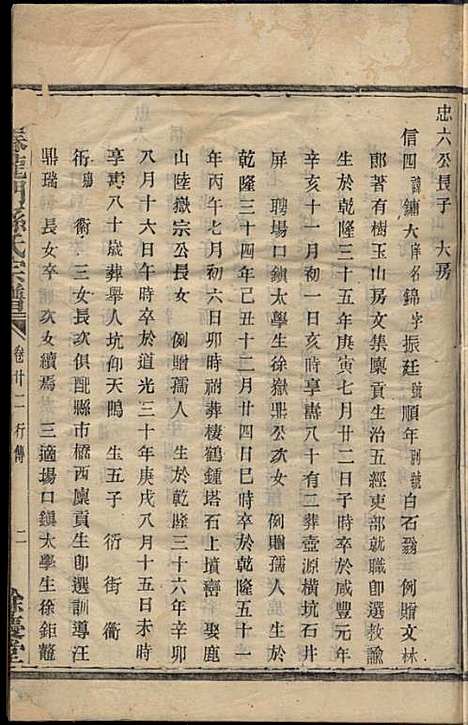 忠六公長子　大房
信四諱鏞大庠名錦字振廷號順年別號白石翁　例贈文林
郎著有樹玉山房文集廩貢生治五經吏部就職即選教諭
生於乾隆三十五年庚寅七月廿二日子時卒於咸豐元年
辛亥十一月初一日亥時享壽八十有二葬壺源橫坑石井
屏　聘場口鎮太學生徐嶽鼎公次女　例贈孺人　生於
乾隆三十四年己丑十二月廿四日巳時卒於乾隆五十一
年丙午七月初六日卯時祔葬棲鶴鍾塔石上墳　娶鹿
山陸嶽宗公長女　例贈孺人　生於乾隆三十六年辛卯
八月十六日午時卒於道光三十年庚戌八月十五日未時
享壽八十歲葬舉人坑仰天鴫　生五子　衍　街　衢
術　衛　三女長次俱配縣市橋西廩貢生即選訓導汪
鼎瑞　長女卒　次女續焉　三適場口鎮太學生徐鉅鼇
龍門孫氏宗譜　卷廿二行傳　二　餘慶堂